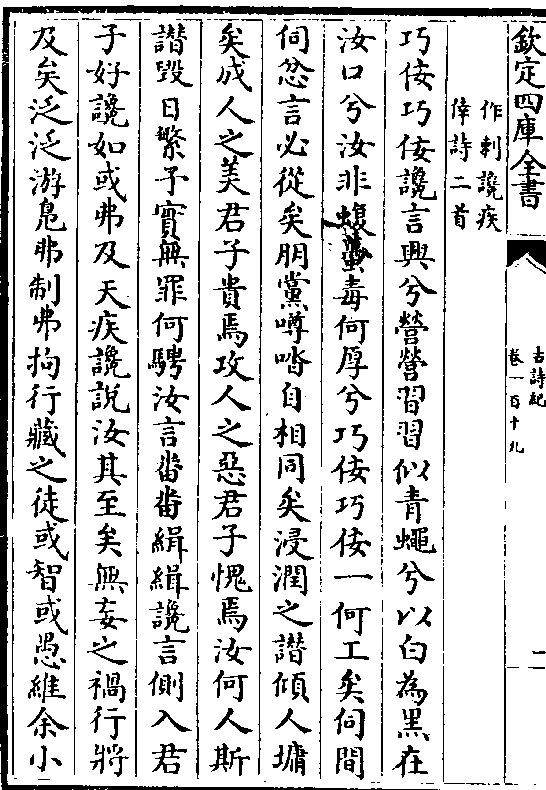 欽定四庫全書
古詩紀
卷一百十九
二
作刺讒疾
倖詩二首
巧佞巧佞讒言興兮營營習習似青蠅兮以白為黑在
汝口兮汝非蝮蠆毒何厚兮巧佞巧佞一何工矣伺間
伺忿言必從矣朋黨噂沓自相同矣浸潤之譖傾人墉
矣成人之美君子貴焉攻人之惡君子愧焉汝何人斯
譖毀日繁予實無罪何騁汝言畨畨緝緝讒言側入君
子好讒如或弗及天疾讒說汝其至矣無妄之禍行將
及矣泛泛游鳧弗制弗拘行藏之徒或智或愚維余小